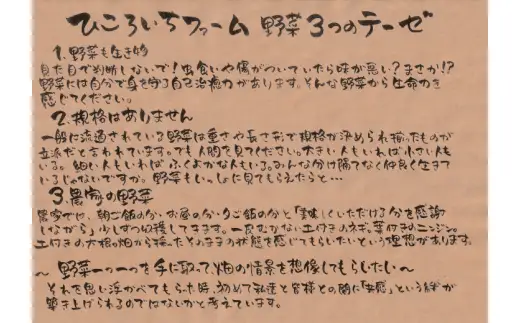 ひころいちファーム 野菜3つのテーゼ
1.野菜も生き物
見た目で判断しないで!虫食いや傷がついていたら味が悪い?まさか!?
野菜には自分で身を守る自己治癒力があります。そんな野菜から生命力を
感じてください。
2.規格はありません
一般に流通されている野菜は重さや長さ形で規格が決められ揃ったものが
立派だと言われています。でも人間を見てください。大きい人もいれば小さい人も
いる。細い人もいればふくよかな人もいる。みんな分け隔てなく仲良く生きて
いるじゃないですか。野菜もいっしょに見てもらえたらと…
3.農家の野菜
農家では、朝ご飯の分・お昼の分・夕ご飯の分と「美味しくいただける分を感謝
しながら」少しずつ収穫してきます。一皮むかない土付きのネギ、葉付きのニンジン。
土付きの大根。畑から採ったそのままの状態を感じてもらいたいという理想があります。
~ 野菜一つ一つを手に取って、畑の情景を想像してもらいたい ~
それを思い浮かべてもらった時、初めて私達と皆様との間に「共感」という絆が
築き上げられるのではないかと考えています。